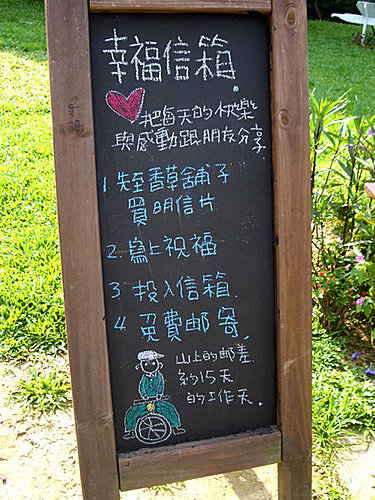 幸福信箱.
把每天的快樂
與感動跟朋友分享.
1. 先至香草舖子
買明信片
2. 寫上祝福
3. 投入信箱.
4. 免費邮寄.
山上的邮差
約15天
的工作天.